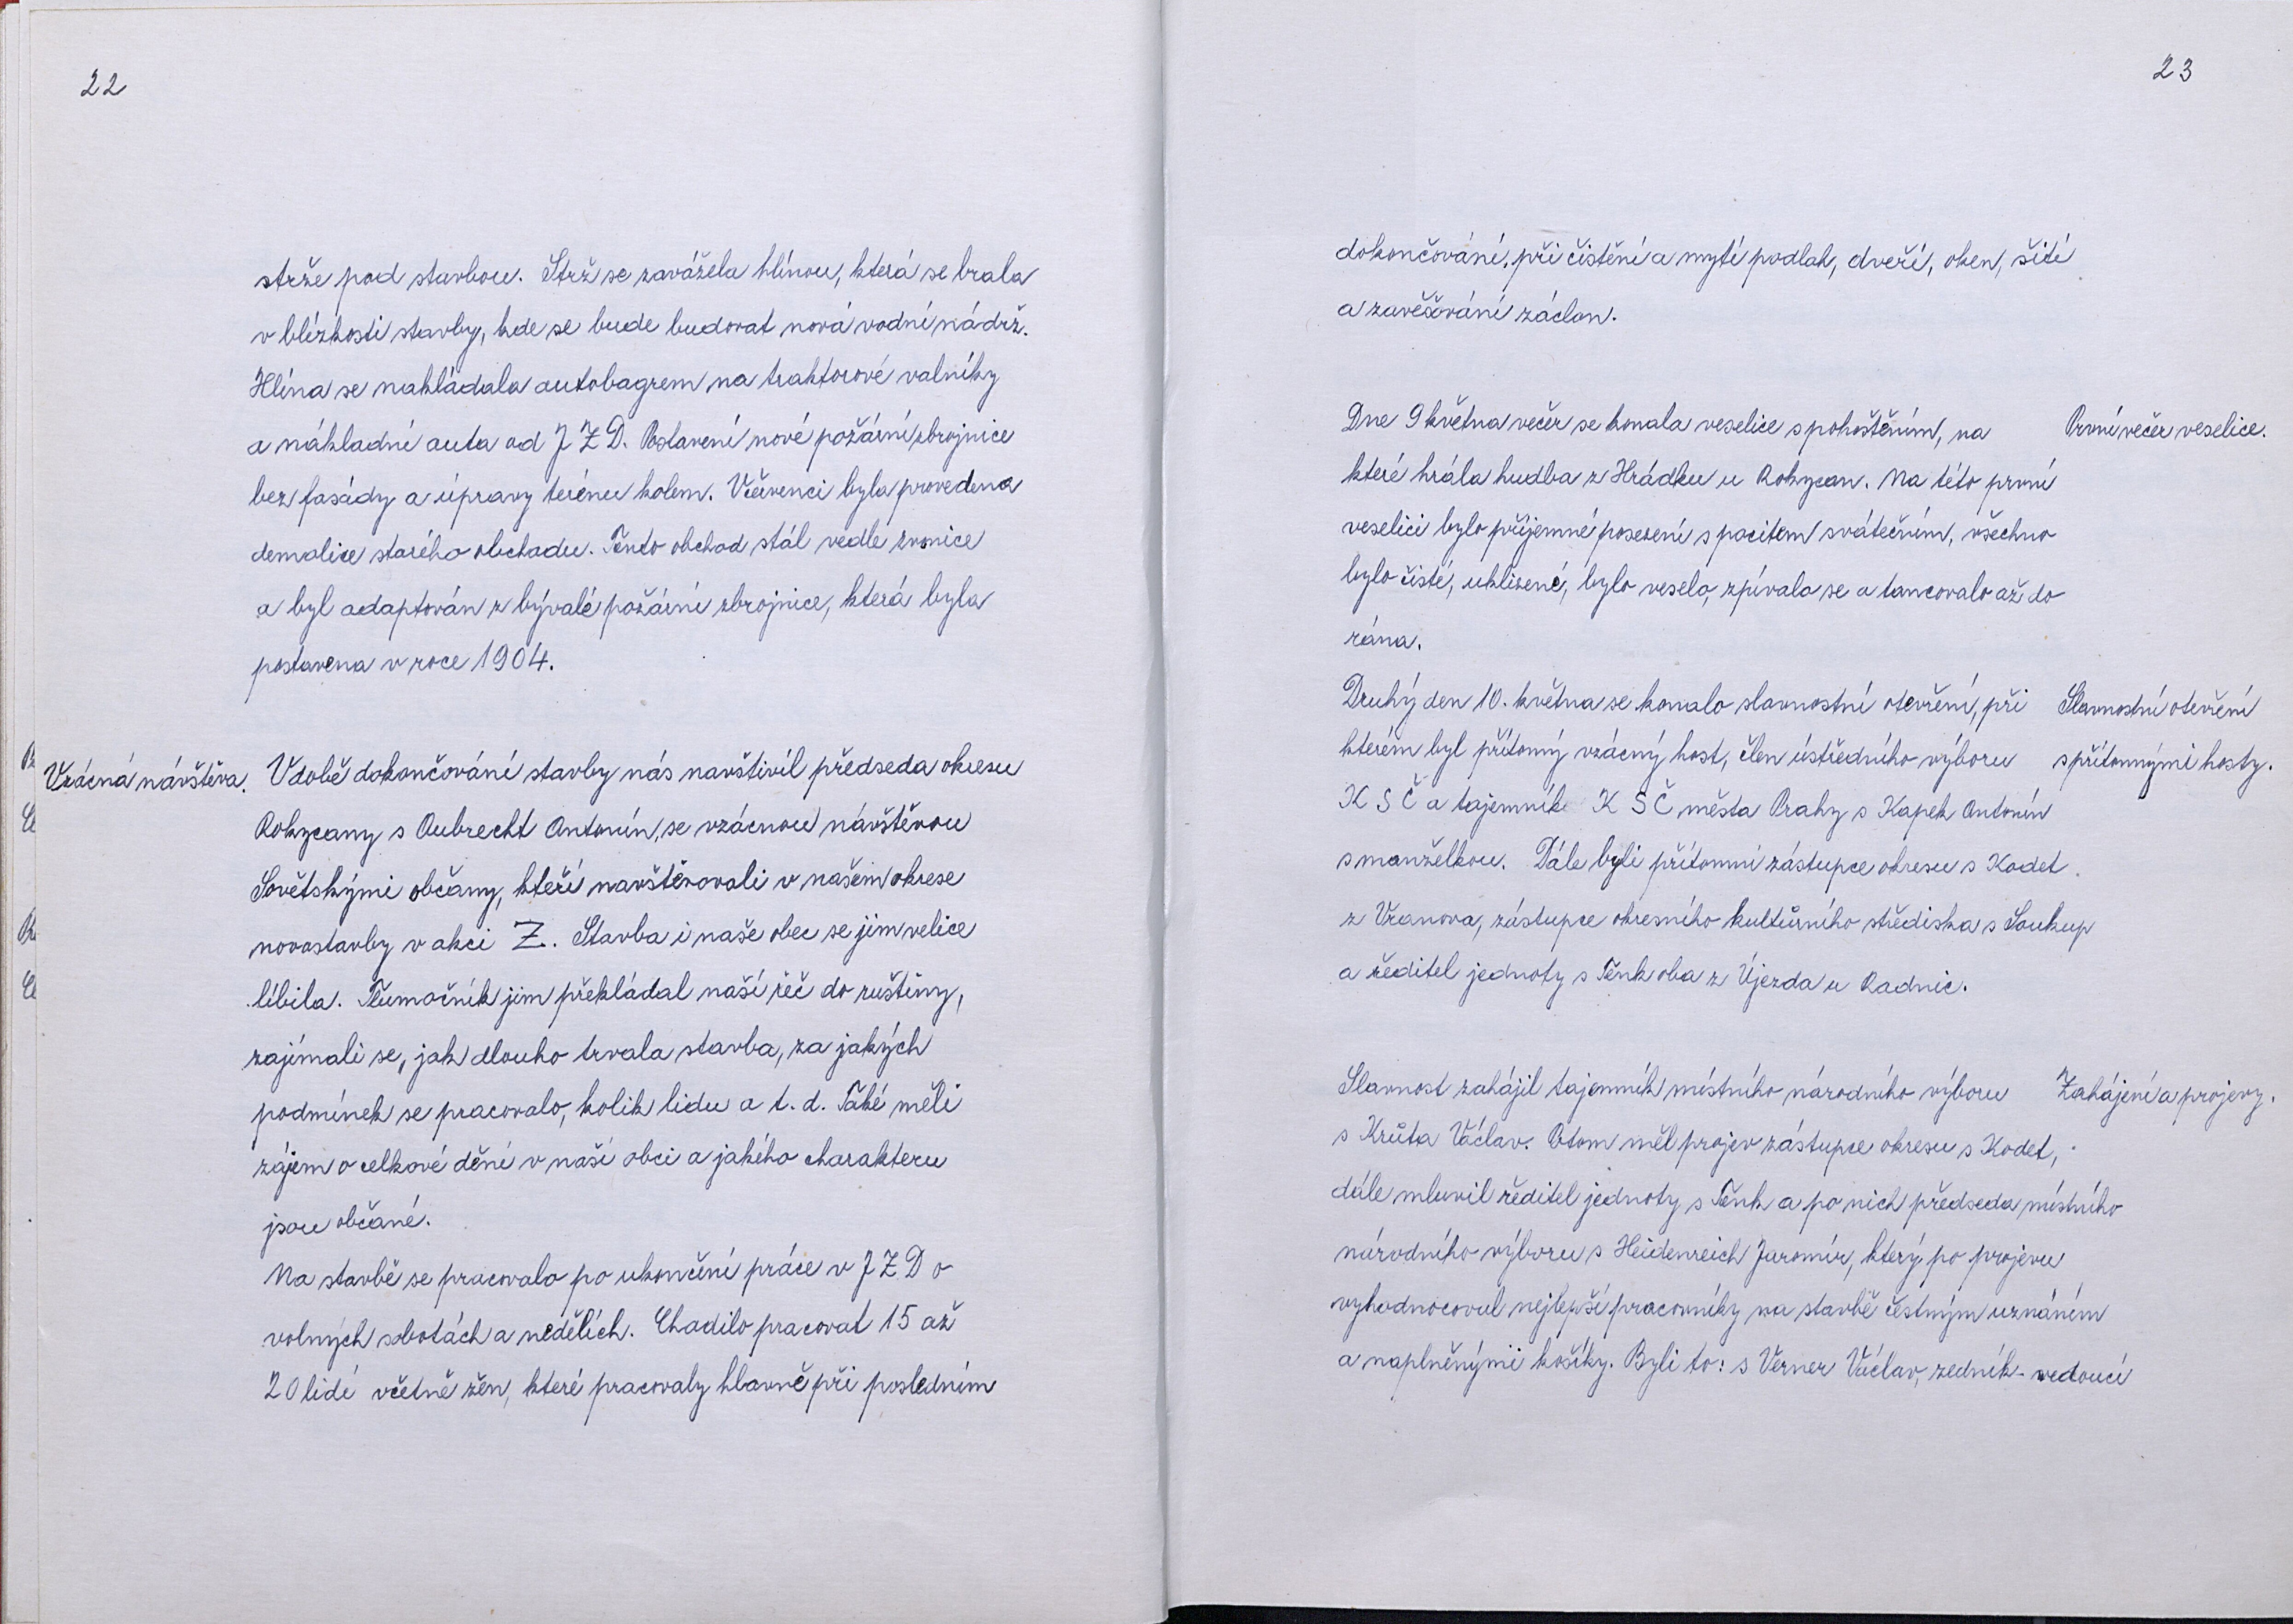 22
strže pod stavbou. Strž se zavážela hlínou, která se brala
v blízkosti stavby, kde se bude budovat nová vodní nádrž.
Hlína se nakládala autobagrem na traktorové valníky
a nákladní auta od J Z D. Postavení nové požární zbrojnice
bez fasády a úpravy terénu kolem. V červenci byla provedena
demolice starého obchodu. Tento obchod stál vedle zvonice
a byl adaptován z bývalé požární zbrojnice, která byla
postavena v roce 1904.
Vzácná návštěva.
V době dokončování stavby nás navštívil předseda okresu
Rokycany s Aubrecht Antonín, se vzácnou návštěvou
Sovětskými občany, kteří navštěvovali v našem okrese
novostavby v akci Z. Stavba i naše obec se jim velice
líbila. Tlumočník jim překládal naší řeč do ruštiny,
zajímali se, jak dlouho trvala stavba, za jakých
podmínek se pracovalo, kolik lidu a t. d. Také měli
zájem o celkové dění v naší obci a jakého charakteru
jsou občané.
Na stavbě se pracovalo po ukončení práce v J Z D o
volných sobotách a nedělích. Chodilo pracovat 15 až
20 lidí včetně žen, které pracovaly hlavně při posledním
23
dokončování, při čistění a mytí podlah, dveří, oken, šití
a zavěšování záclon.
Dne 9 května večer se konala veselice s pohoštěním, na
První večer veselice.
které hrála hudba z Hrádku u Rokycan. Na této první
veselici bylo příjemné posezení s pocitem svátečním, všechno
bylo čisté, uklizené, bylo veselo, zpívalo se a tancovalo až do
rána.
Druhý den 10. května se konalo slavnostní otevření, při
Slavnostní otevření
kterém byl přítomný vzácný host, člen ústředního výboru
s přítomnými hosty.
K S Č a tajemník K S Č města Prahy s Kapek Antonín
s manželkou. Dále byli přítomni zástupce okresu s Kodet
z Vranova, zástupce okresního kultůrního střediska s Soukup
a ředitel jednoty s Tenk oba z Újezda u Radnic.
Slavnost zahájil tajemník místního národního výboru
Zahájení a projevy.
s Krůta Václav. Potom měl projev zástupce okresu s Kodet,
dále mluvil ředitel jednoty s Tenk a po nich předseda místního
národního výboru s Heidenreich Jaromír, který po projevu
vyhodnocoval nejlepší pracovníky na stavbě čestným uznáním
a naplněnými košíky. Byli to: s Verner Václav, zedník - vedoucí